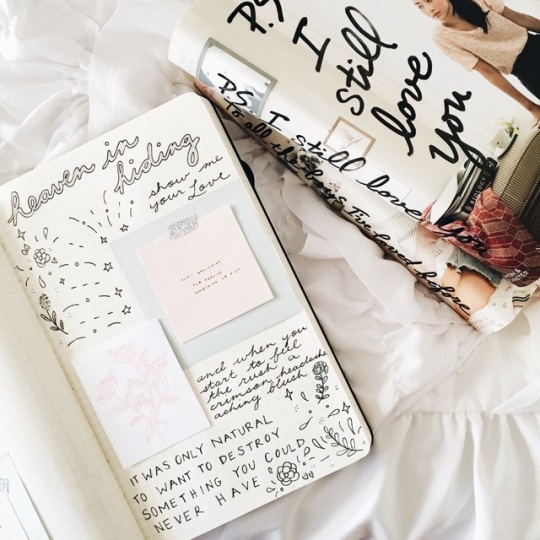 heaven in
hiding
show me
your love
and when you
start to feel
the rush a
crimson headache
aching blush
IT WAS ONLY NATURAL
TO WANT TO DESTROY
SOMETHING YOU COULD
NEVER HAVE
P.S.
I
still
love
you
P.S. I still love you
To all the boys I've loved before